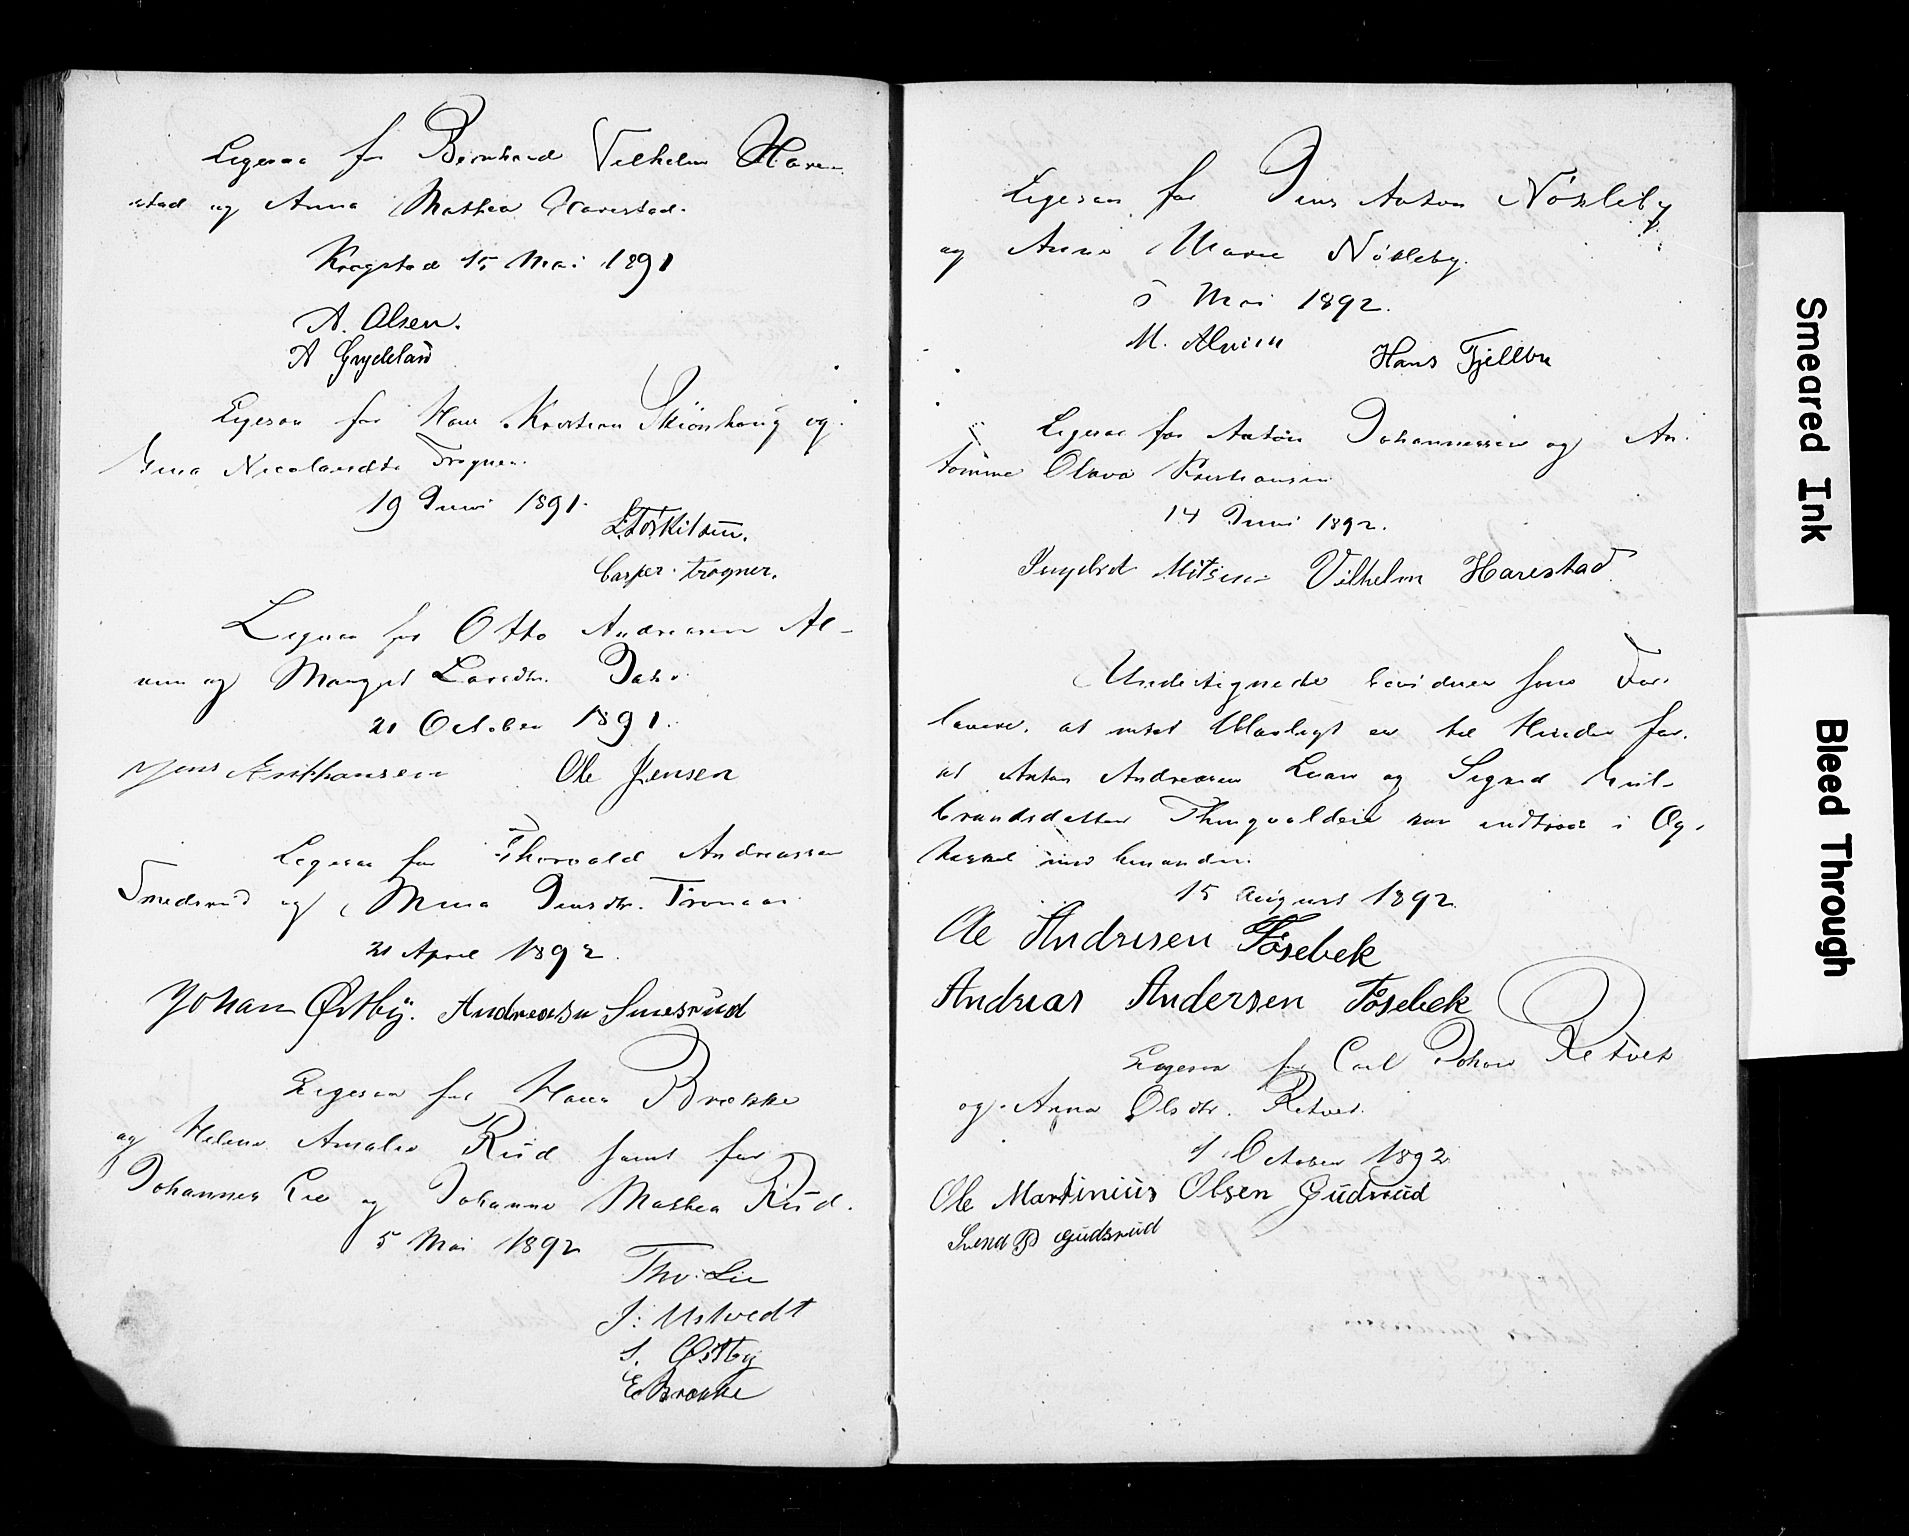 Ligesaa for Bernhard Vilhelm Hare-
stad og Anna Mathea Harestad.
Krogstad 15 Mai 1891
A. Olsen.
A Grydeland
Ligesaa for Hans Kristian Skiönhaug og
Gina Nicolaidtr Trogner.
19 Juni 1891.
L. Torkilsen.
Casper Trogner.
Ligesaa for Otto Andreasen Al-
vim og Margit Larsdtr.
21 October 1891.
Jens Knuthansen
Ole Jensen
Ligesaa for Thorvald Andreassen
Smedsrud og Mina Jensdtr. Tronaas
21 April 1892.
Johan Østby. Andreas Smesrud
Ligesaa for Hans Brække
og Helene Amalie Rud samt for
Johannes Lie og Johanne Mathea Rud.
5 Mai 1892
Thv. Lie
J. Ustvedt
S. Østby
E Brække
Ligesaa for Jens Anton Nökleby
og Anne Marie Nökleby.
5 Mai 1892.
M. Alvim Hans Fjellbu
Ligesaa for Anton Johannessen og An-
tomine Olava Kristiansen
14 Juni 1892.
Ingebrd Vilhelm Harestad
Undertegnede bevidner som For-
lovere, at intet Ulovligt er til Hinder for,
at Anton Andreasen Luan og Sigrid Gul-
brandsdatter Thingvoldeie kan indtræde i Æg-
teskab med hinanden.
15 August 1892
Ole Andresen Fosebek
Andreas Andersen Fosebek
Ligesaa for Carl Johan Retvet
og Anna Olsdtr. Retvet.
1 October 1892
Ole Martinius Olsen Gudsrud
Svend P Gudsrud
Smeared Ink
Bleed Through